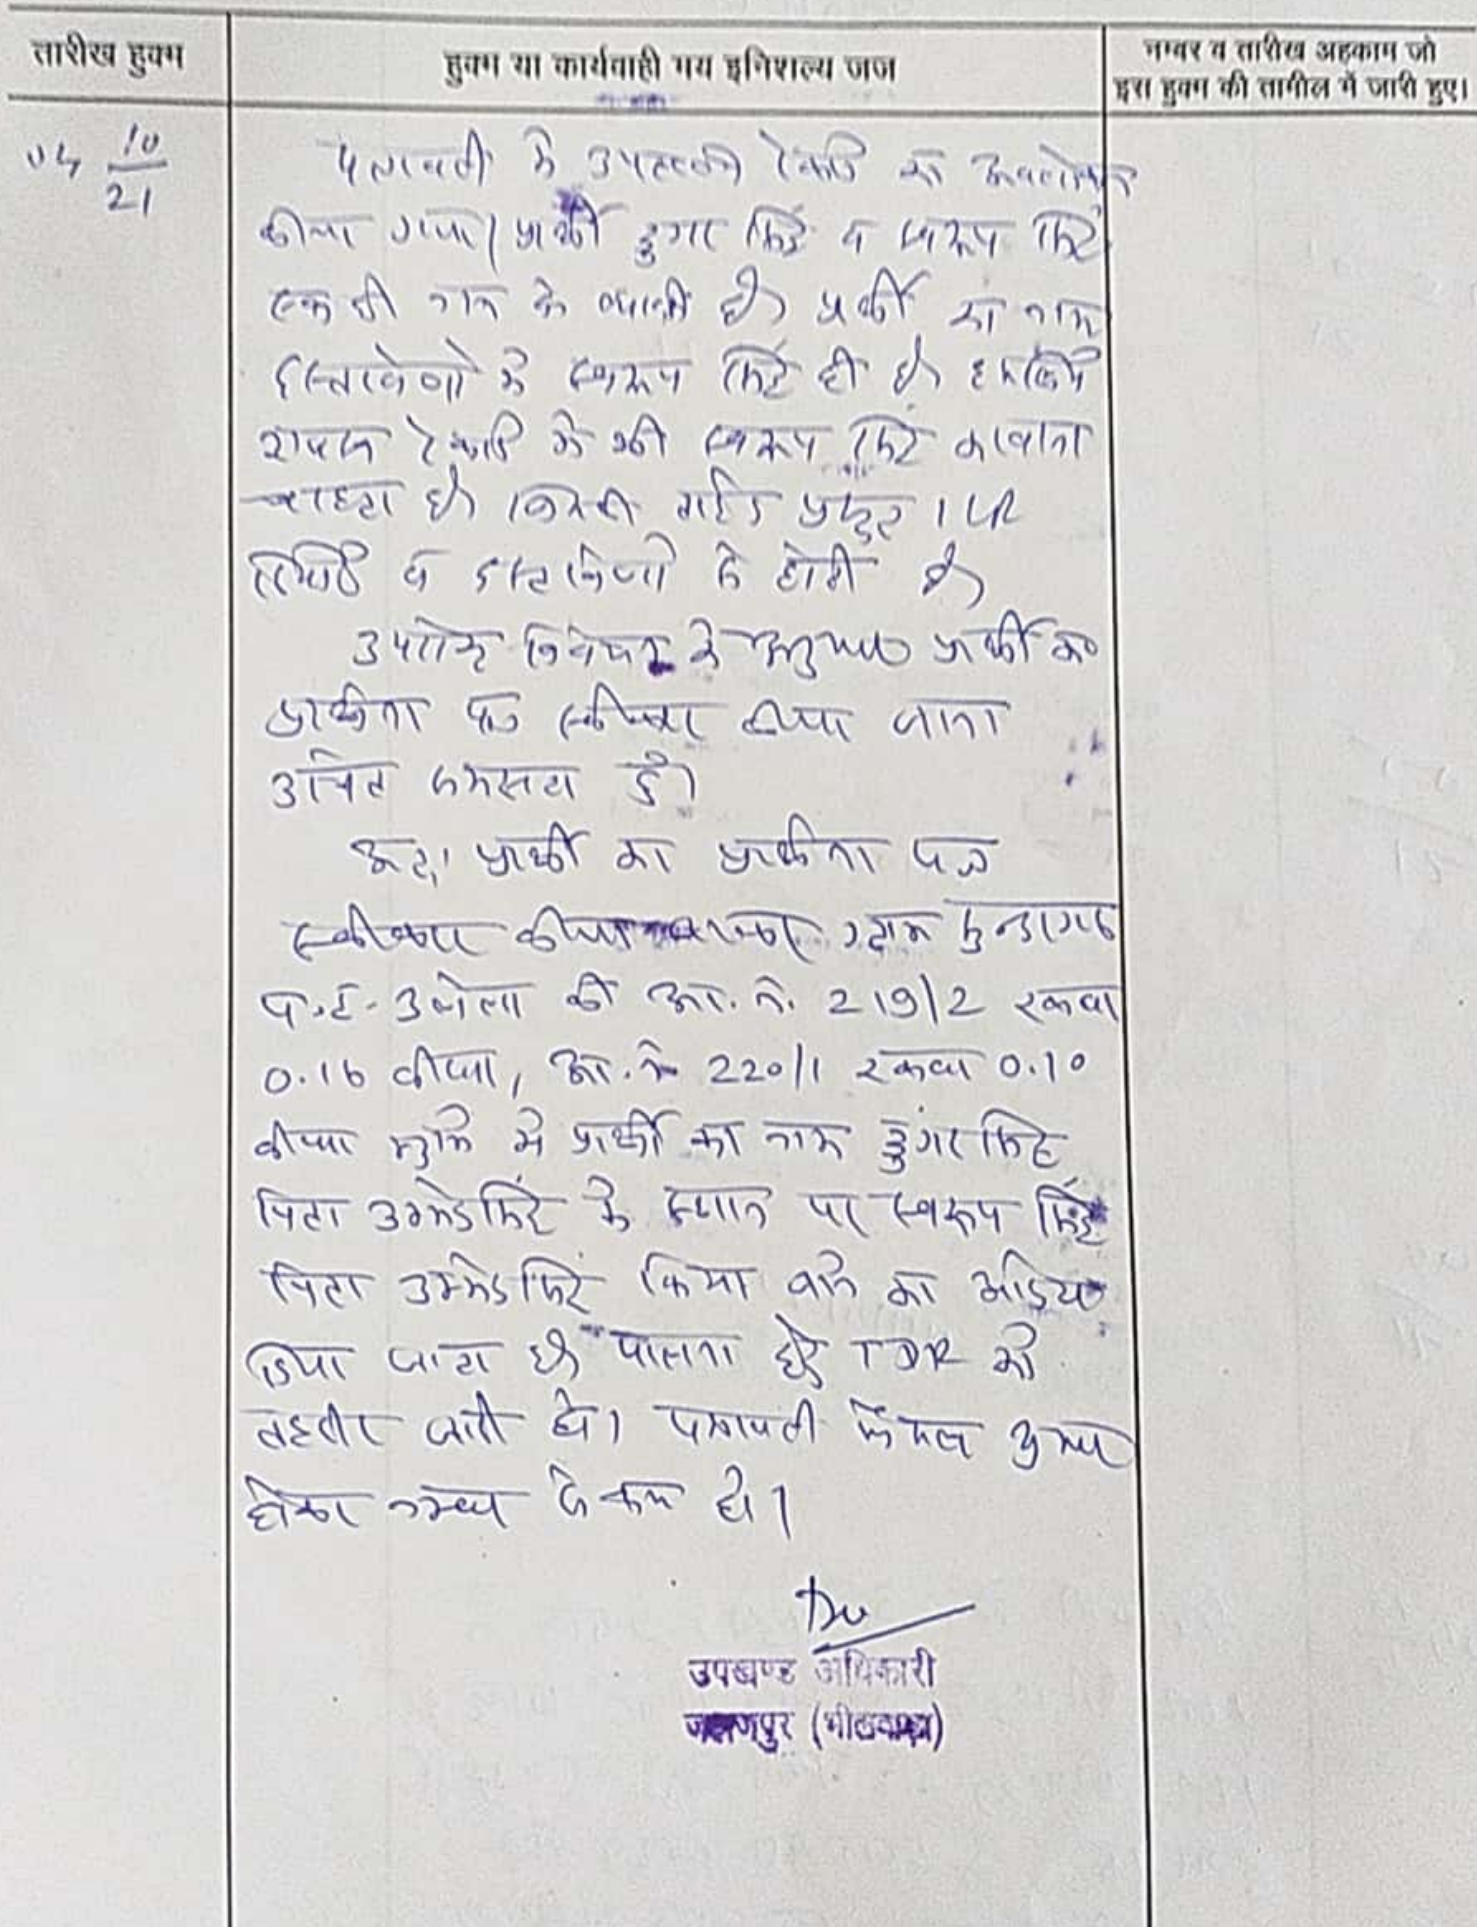 तारीख हुक्म
हुक्म या कार्यवाही मय इनिशल्य जज
नम्बर व तारीख अहकाम जो
इस हुक्म की तामील में जारी हुए।
04 10/21
पत्रावली में उपलब्ध रेकार्ड का अवलोकन
कीया गया। प्रार्थी डुंगर सिंह व स्वरूप सिंह
एक ही नाम के व्यक्ति है। प्रार्थी का नाम
दस्तावेजो में स्वरूप सिंह ही है। इसलिये
राजस्व रेकार्ड में भी स्वरूप सिंह करवाना
चाहता है। जिसकी ताईद प्रस्तुत
रिपोर्ट व दस्तावेजो से होती है।
उपरोक्त विवेचन के अनुसार प्रार्थी का
प्रार्थना पत्र स्वीकार कीया जाना
उचित समझता हूँ।
अतः प्रार्थी का प्रार्थना पत्र
स्वीकार कीया जाकर ग्राम
प.ह. की आ. नं. 219/2 रकबा
0.16 बीघा, आ. नं 220/1 रकबा 0.10
बीघा भूमि में प्रार्थी का नाम डुंगर सिंह
पिता उम्मेदसिंह के स्थान पर स्वरूप सिंह
पिता उम्मेदसिंह किया जाने का आदेश
दिया जाता है। पालना हेतु TDR को
तहरीर जारी हो। पत्रावली फैसल शुमार
होकर नम्बर से कम हो।
उपखण्ड अधिकारी
जहाजपुर (भीलवाड़ा)